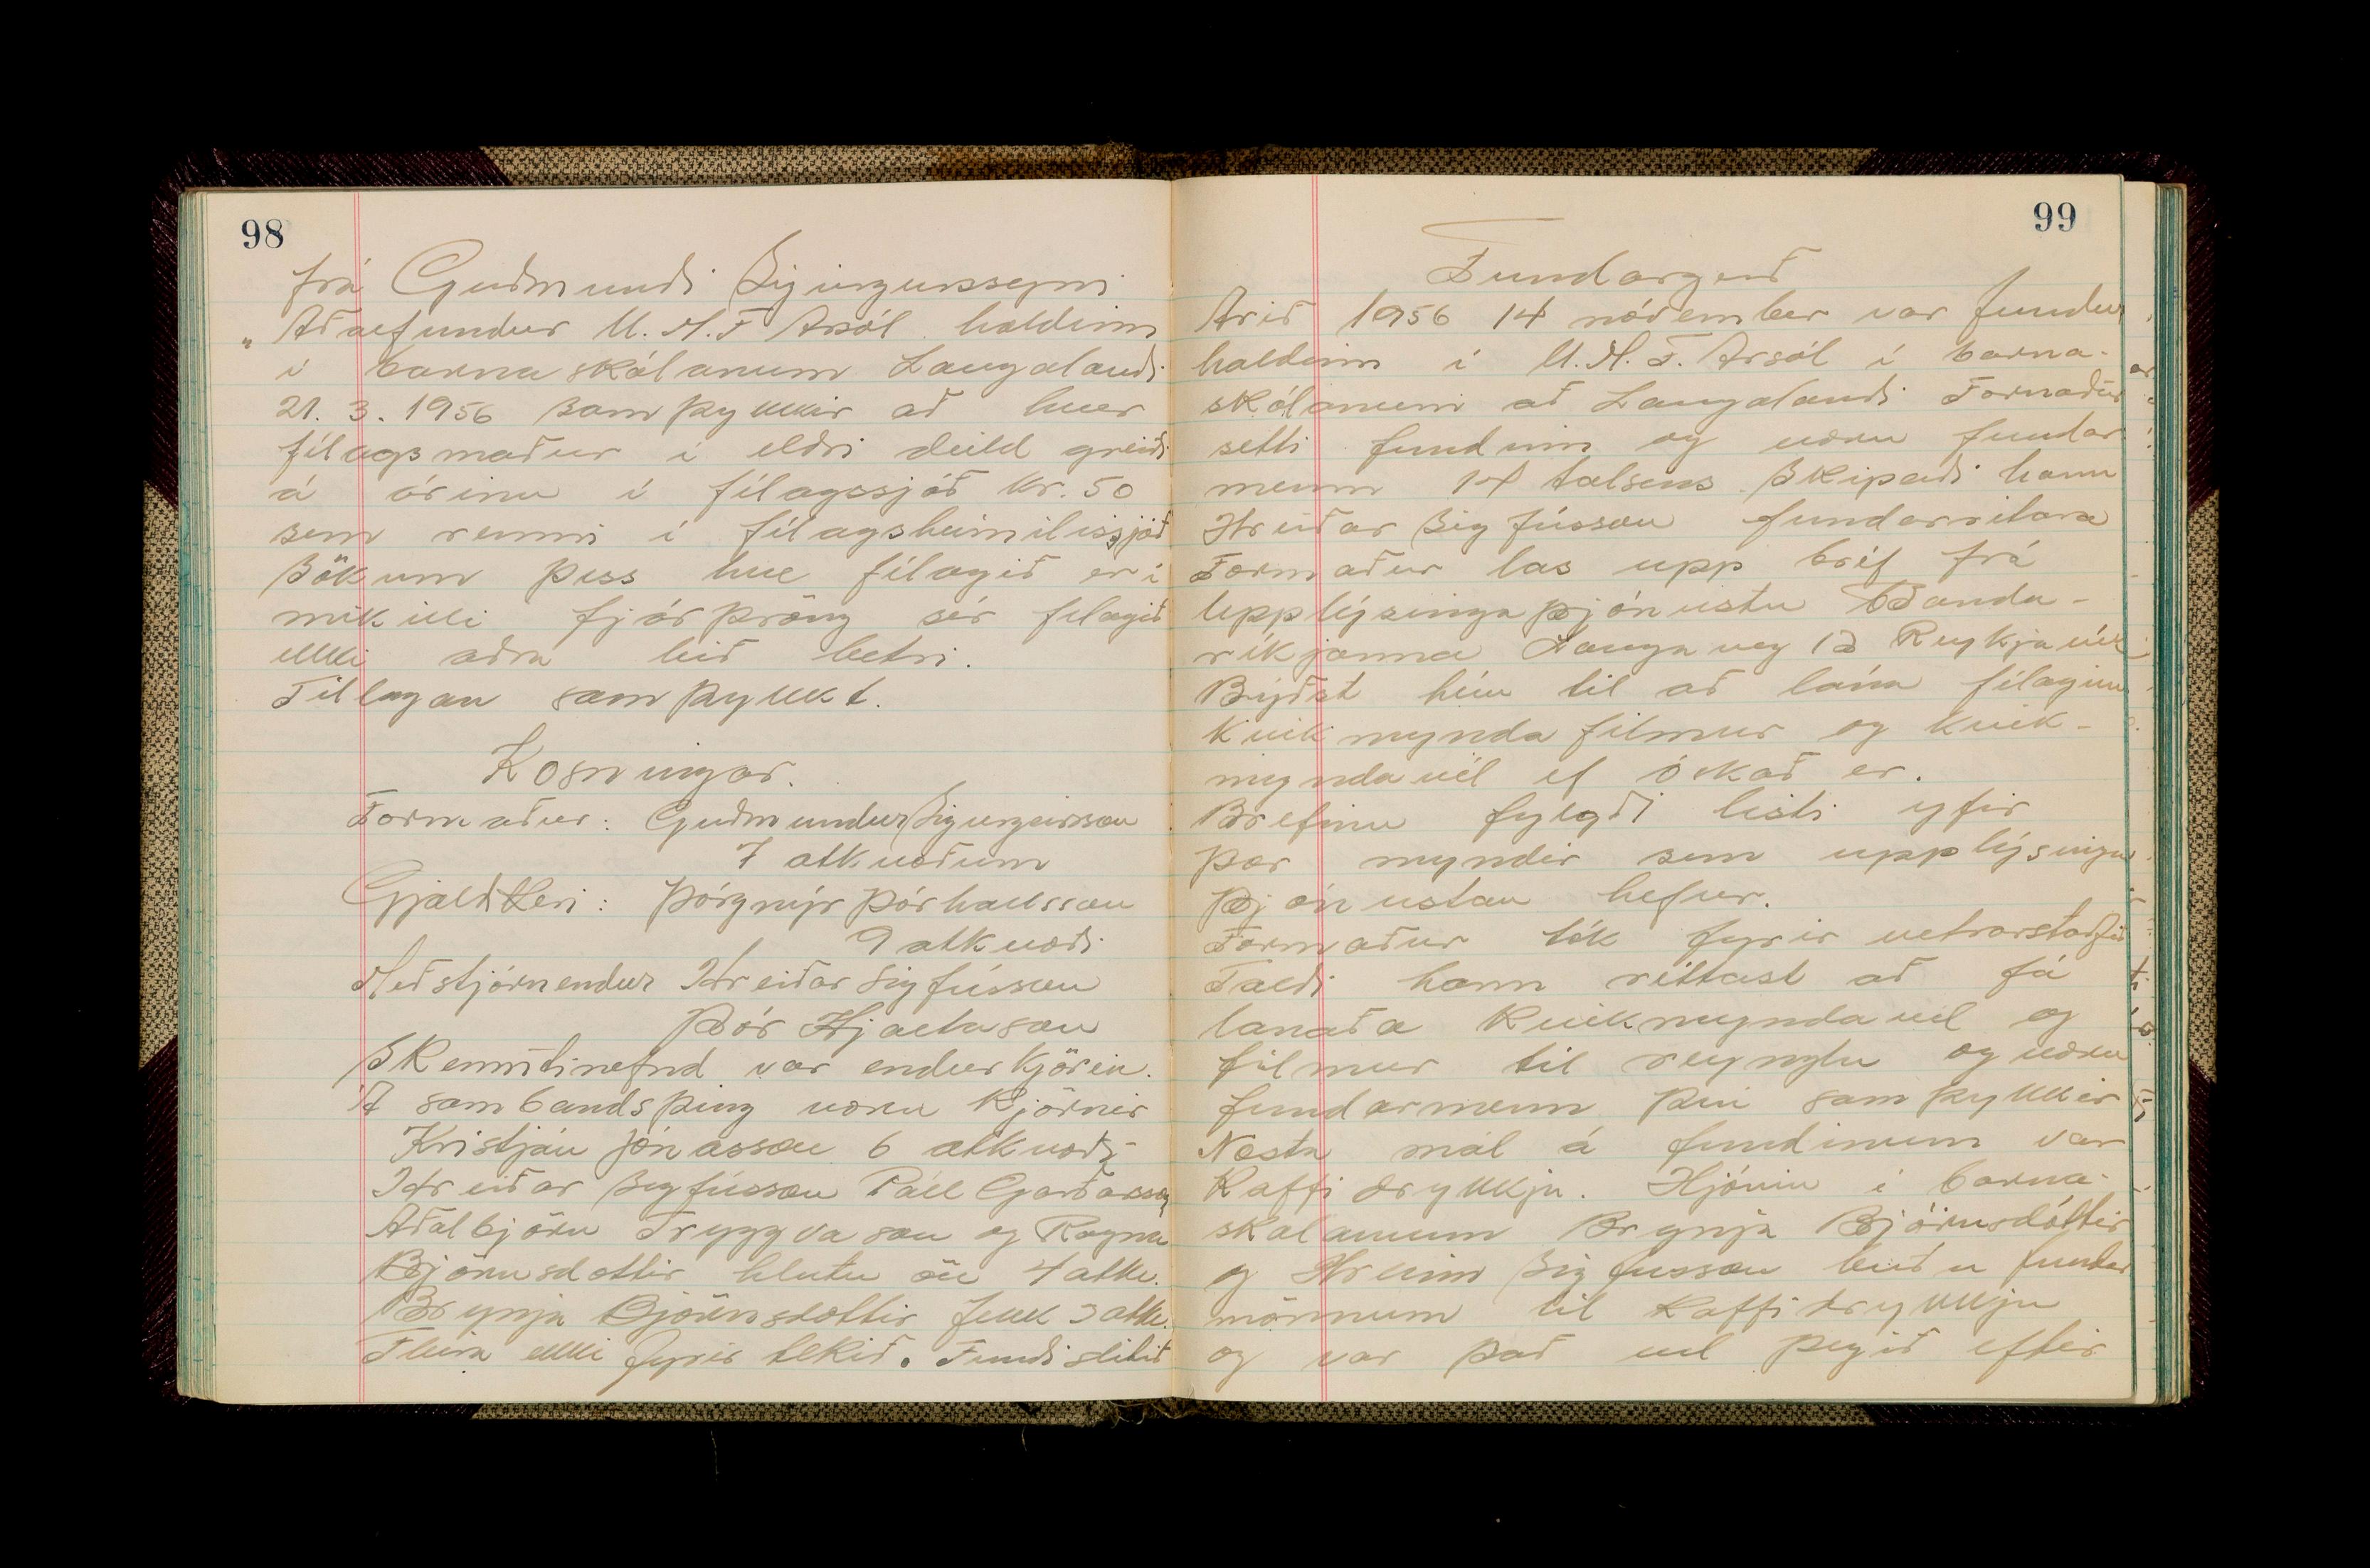 98
frá Guðmundi Sigurgeirssyni
„Aðalfundur U.M.F Ársól haldinn
í barnaskólanum Laugalandi
21. 3. 1956 samþykkir að hver
félagsmaður í eldri deild greiði
á árinu í félagssjóð kr. 50
sem renni í félagsheimilissjóð
Sökum þess hve félagið er í
mikilli fjárþröng sér félagið
ekki aðra leið betri.
Tillagan samþykkt.
Kosningar.
Formaður: Guðmundur Sigurgeirsson
7 atkvæðum
Gjaldkeri: Þórgnýr Þórhallsson
9 atkvæði
Meðstjórnendur Hreiðar Sigfússon
Þór Hjaltason
Skemmtinefnd var endurkjörin.
Á sambandsþing voru kjörnir
Kristján Jónasson 6 atkvæði
Hreiðar Sigfússon Páll Garðarsson
Aðalbjörn Tryggvason og Ragna
Björnsdottir hlutu öll 4 atkv.
Brynja Björnsdottir fekk 3 atkv.
Fleira ekki fyrir tekið. Fundi slitið
99
Fundargerð
Árið 1956 14 nóvember var fundur
haldinn í U.M.F. Ársól í barna-
skólanum að Laugalandi Formaður
setti fundinn og voru fundar
menn 14 talsins. Skipaði hann
Hreiðar Sigfússon fundarritara
Formaður las upp bréf frá
Upplýsingaþjónustu Banda-
ríkjanna Laugaveg 13 Reykjavík
Býðst hún til að lána félaginu
kvikmynda filmur og kvik-
myndavél ef óskað er.
Brefinu fylgdi listi yfir
þær myndir sem upplýsinga
þjónustan hefur.
Formaður tók fyrir vetrarstarfið
Taldi hann réttast að fá
lanaða kvikmyndavél og
filmur til reynslu og voru
fundarmenn því samþykkir
Næsta mál á fundinum var
Kaffidrykkja. Hjónin í barna-
skolanum Brynja Björnsdóttir
og Hreinn Sigfusson buðu fundar
mönnum til kaffidrykkju
og var það vel þegið eftir